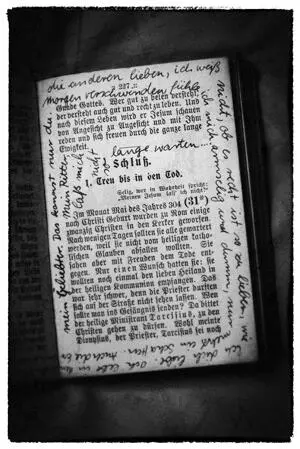 die anderen lieben, ich weiß
morgen verschwinden
237
Gnade Gottes. Wer gut zu beten versteht,
der versteht auch gut und recht zu leben. Und
nach diesem Leben wird er Jesum schauen
von Angesicht zu Angesicht und mit Ihm
reden und sich freuen durch die ganze lange
Ewigkeit.
lange warten...
Schluß.
1. Treu bis in den Tod.
Selig, wer in Wahrheit spricht:
"Meinen Jesum laß ich nicht!"
Im Monat Mai des Jahres 304 (31*)
nach Christi Geburt wurden zu Rom einige
zwanzig Christen in den Kerker geworfen.
Nach wenigen Tagen sollten sie alle gemartert
werden, weil sie nicht vom heiligen katho-
lischen Glauben abfallen wollten. Die
sahen aber mit Freuden dem Tode ent-
gegen. Nur einen Wunsch hatten sie: sie
wollten noch einmal den lieben Heiland in
der heiligen Kommunion empfangen. Das
war sehr schwer, denn die Priester durften
sich auf der Straße nicht sehen lassen. Wen
sollte man ins Gefängnis senden? Da bittet
der heilige Ministrant Tarcisius, zu den
Christen gehen zu dürfen. Wohl meinte
Dionysius, der Priester, Tarcisius sei noch
nicht, ob es recht ist so zu lieben, wie
ich dich liebe
mein Geliebter. Das kannst nur du.
Mein Retter,
laß mich
nicht so